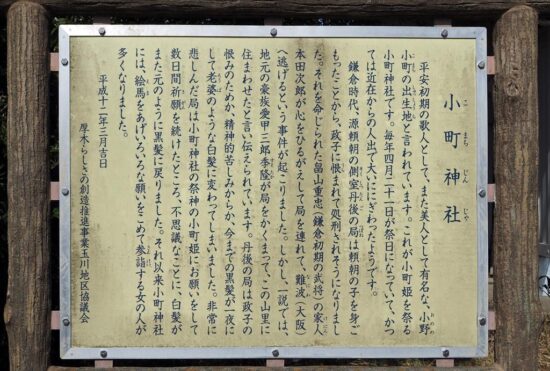 小町神社
こまちじんじゃ
平安初期の歌人として、また美人として有名な、小野
小町の出生地と言われています。これが小町姫を祭る
小町神社です。毎年四月二十一日が祭日になっていて、かつ
ては近在からの人出で大いににぎわったようです。
鎌倉時代、源頼朝の側室丹後の局は頼朝の子を身ご
もったことから、政子に恨まれて処刑されそうになりまし
た。それを命じられた畠山重忠（鎌倉初期の武将）の家人
本田次郎が心をひるがえして局を連れて、難波（大阪）
へ逃げるという事件が起こりました。しかし、一説では、
地元の豪族愛甲三郎季隆が局をかくまって、この山里に
住まわせたと言い伝えられています。丹後の局は政子の
恨みのためか、精神的苦しみからか、今までの黒髪が一夜に
して老婆のような白髪に変わってしまいました。非常に
悲しんだ局は小町神社の祭神の小町姫にお願いをして
数日間祈願を続けたところ、不思議なことに、白髪が
また元のように黒髪に戻りました。それ以来小町神社
には、絵馬をあげいろいろな願いをこめて参詣する女の人が
多くなりました。
平成十二年三月吉日
厚木らしさの創造推進事業玉川地区協議会